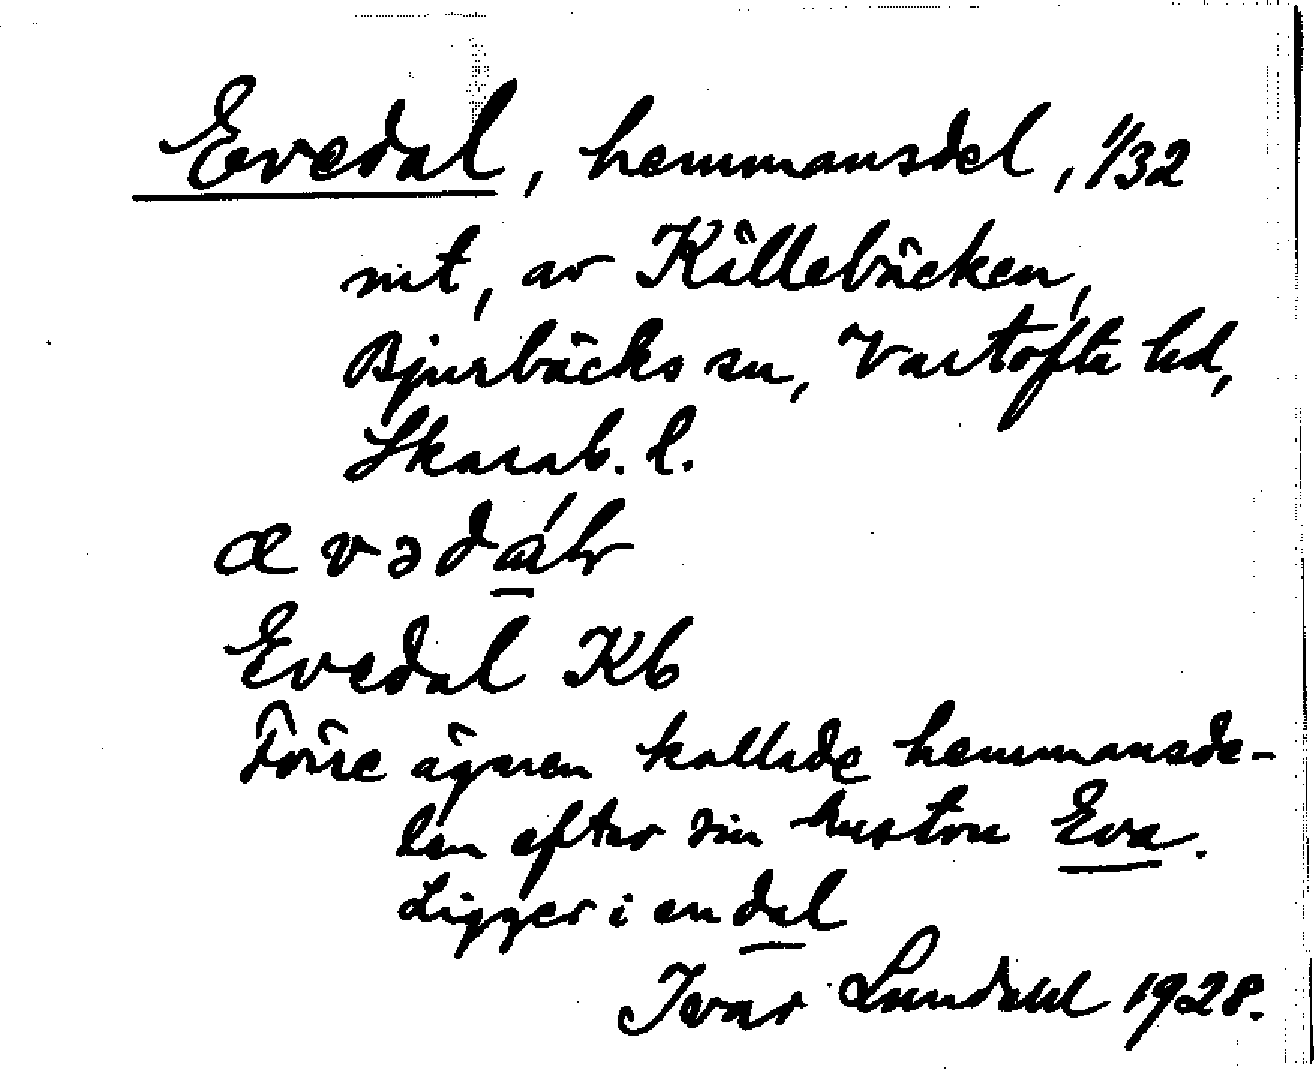 Evedal, hemmansdel, 1/32
mt, av Källebäcken,
Bjurbäcks sn, Vartofta hd,
Skarab. l.
ævədálr
Evedal Kb
Förre ägaren kallade hemmansde-
len efter sin hustru Eva.
Ligger i en dal
Ivar Lundahl 1928.